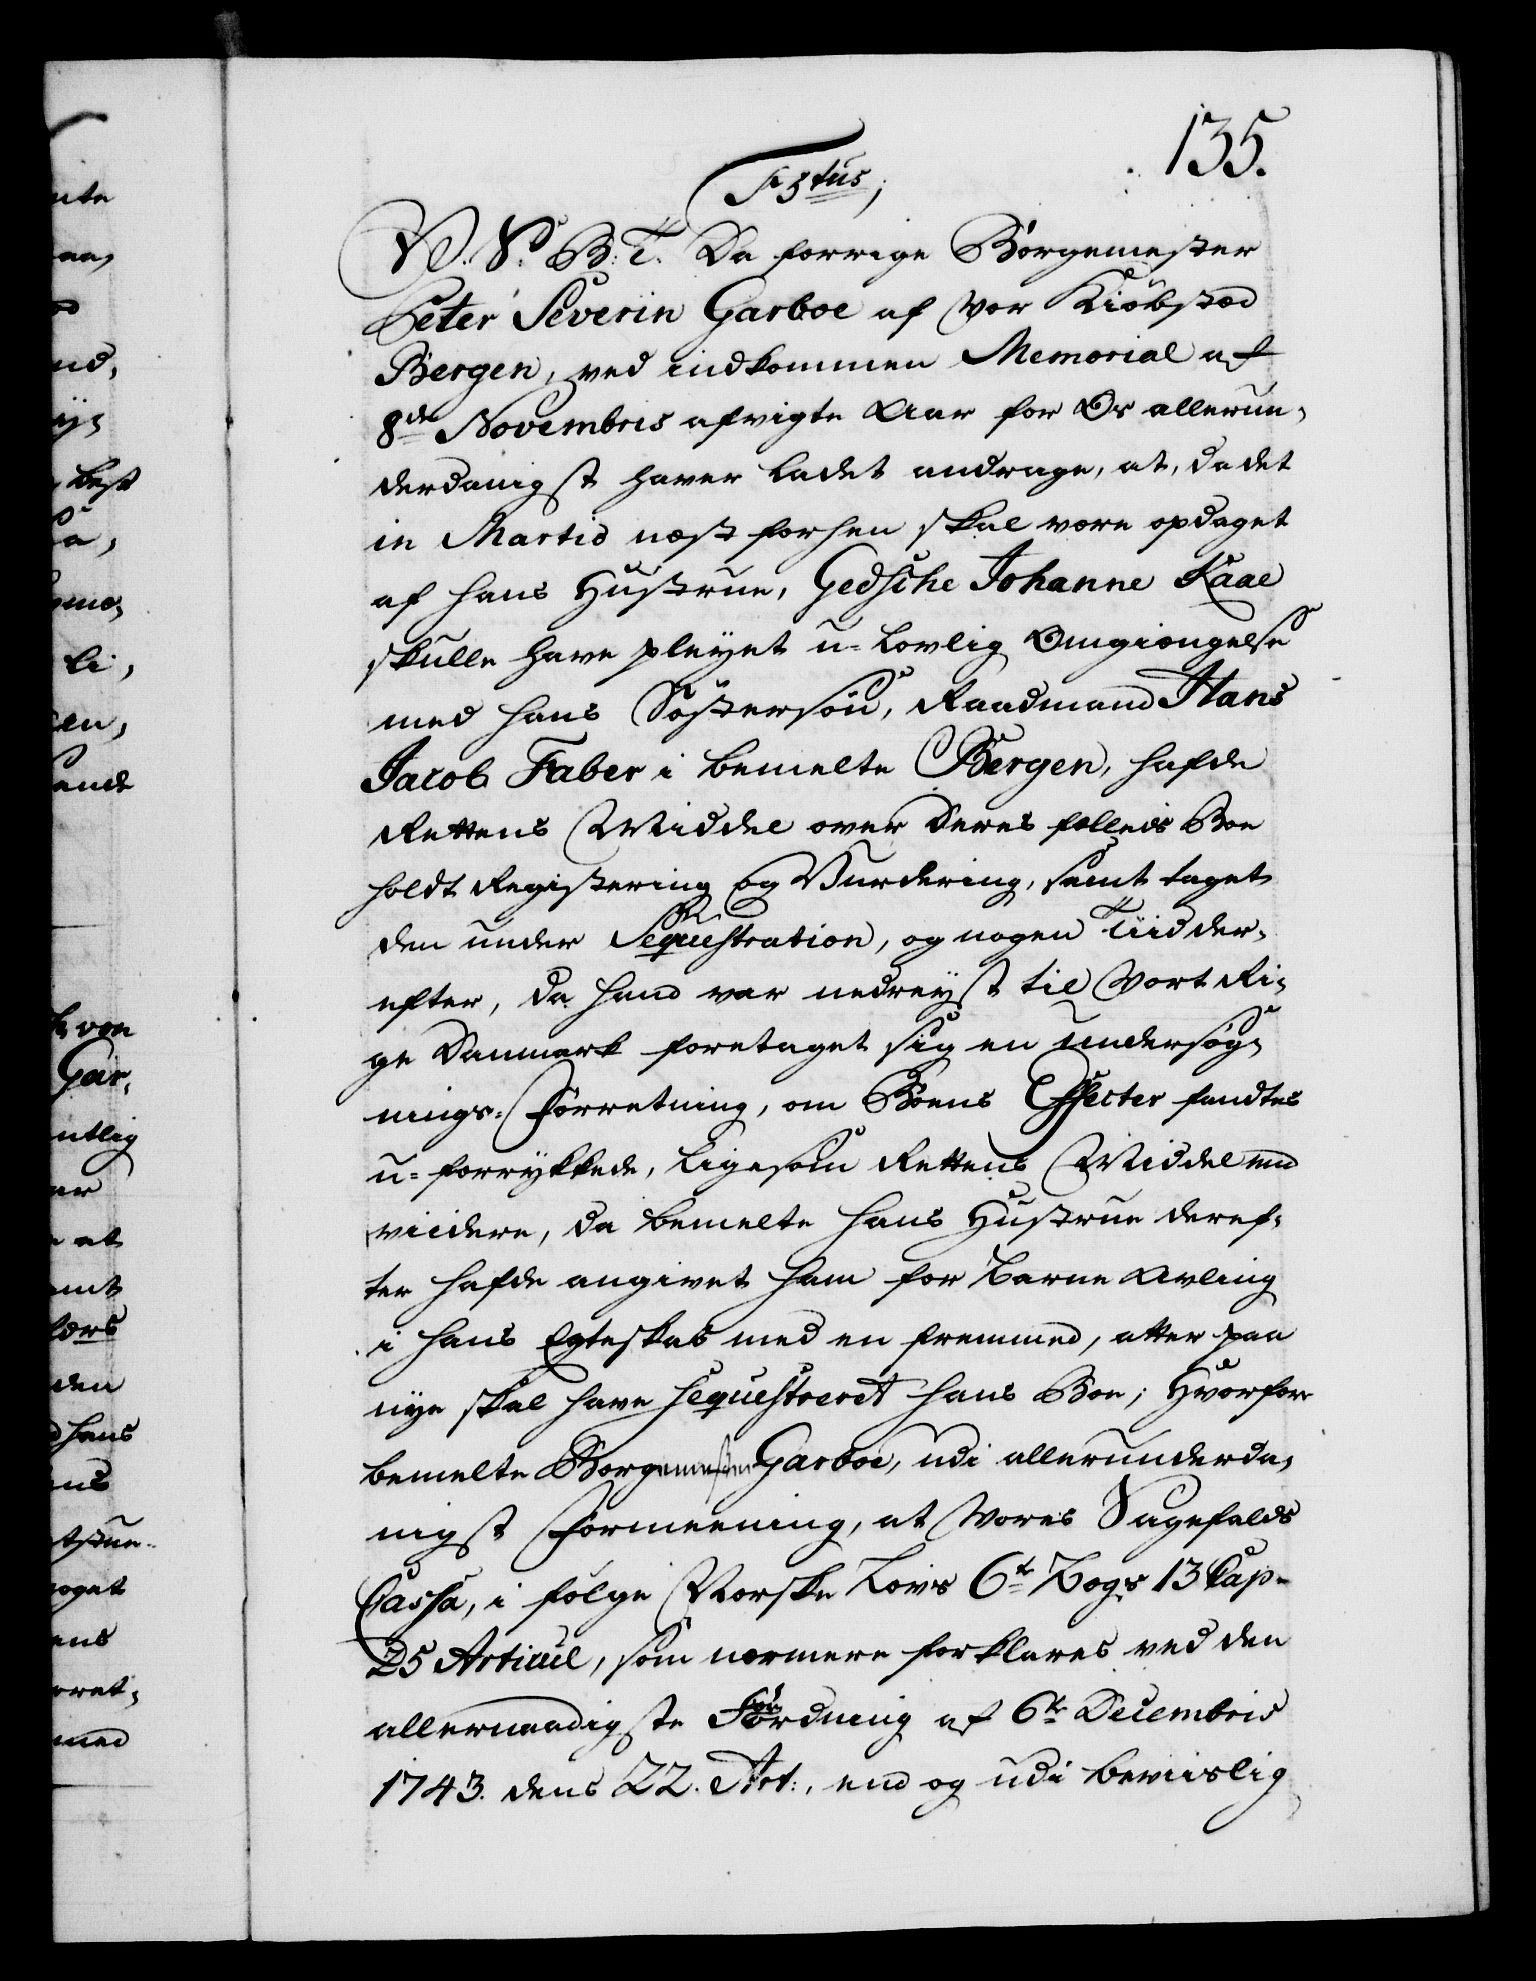 135.
F 5tus;
V. S. B: T. Da forrige Borgemester
Peter Severin Garboe af Vor Kiöbstæd
Bergen, ved indkommen Memorial af
8de Novembris afvigte Aar for Os allerun,
derdanigst haver ladet andrage, at, da det
in Martio næst forhen skal være opdaget
af hans Hustrue, Gedsche Johanne Kaae
skulle have pleyet u-lovlig Omgiængelse
med hans Søstersön, Raadmand Hans
Jacob Faber i bemelte Bergen, hafde
Rettens Middel over Deres fælleds Boe
holdt Registering og Vurdering, samt taget
den under Sequestration, og nogen Tiid der,
efter, da hand var nedreyst til Vort Ri,
ge Danmark foretaget sig en undersøg,
nings-Forretning, om Boens Effecter fandtes
u-forrykkede, ligesom Rettens Middel end
viidere, da bemelte hans Hustrue deref,
ter hafde angivet ham for Barne Avling
i hans Egteskab med en fremmed, atter paa
nye skal have sequestreret hans Boe; Hvorfor
bemelte Borgemester Garboe, udi allerunderda,
nigst Formeening, at Vores Sagefalds
Cassa, i følge Norske Lovs 6te Bogs 13 Cap.
25 Articul, som nærmere forklares ved den
allernaadigste Forordning af 6te Decembris
1743. dens 22. Art:, end og udi beviislig
nte
aa,
nd,
best
li,
en,
ende
Gar,
ntlig
er
at
amt
den
hans
ens
oget
ens
rret,
med